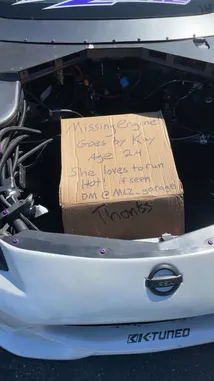 Missing engine
Goes by K24
Age 24
She loves to run
Hot! if seen
DM @MLZ_garage
Thanks
K-TUNED